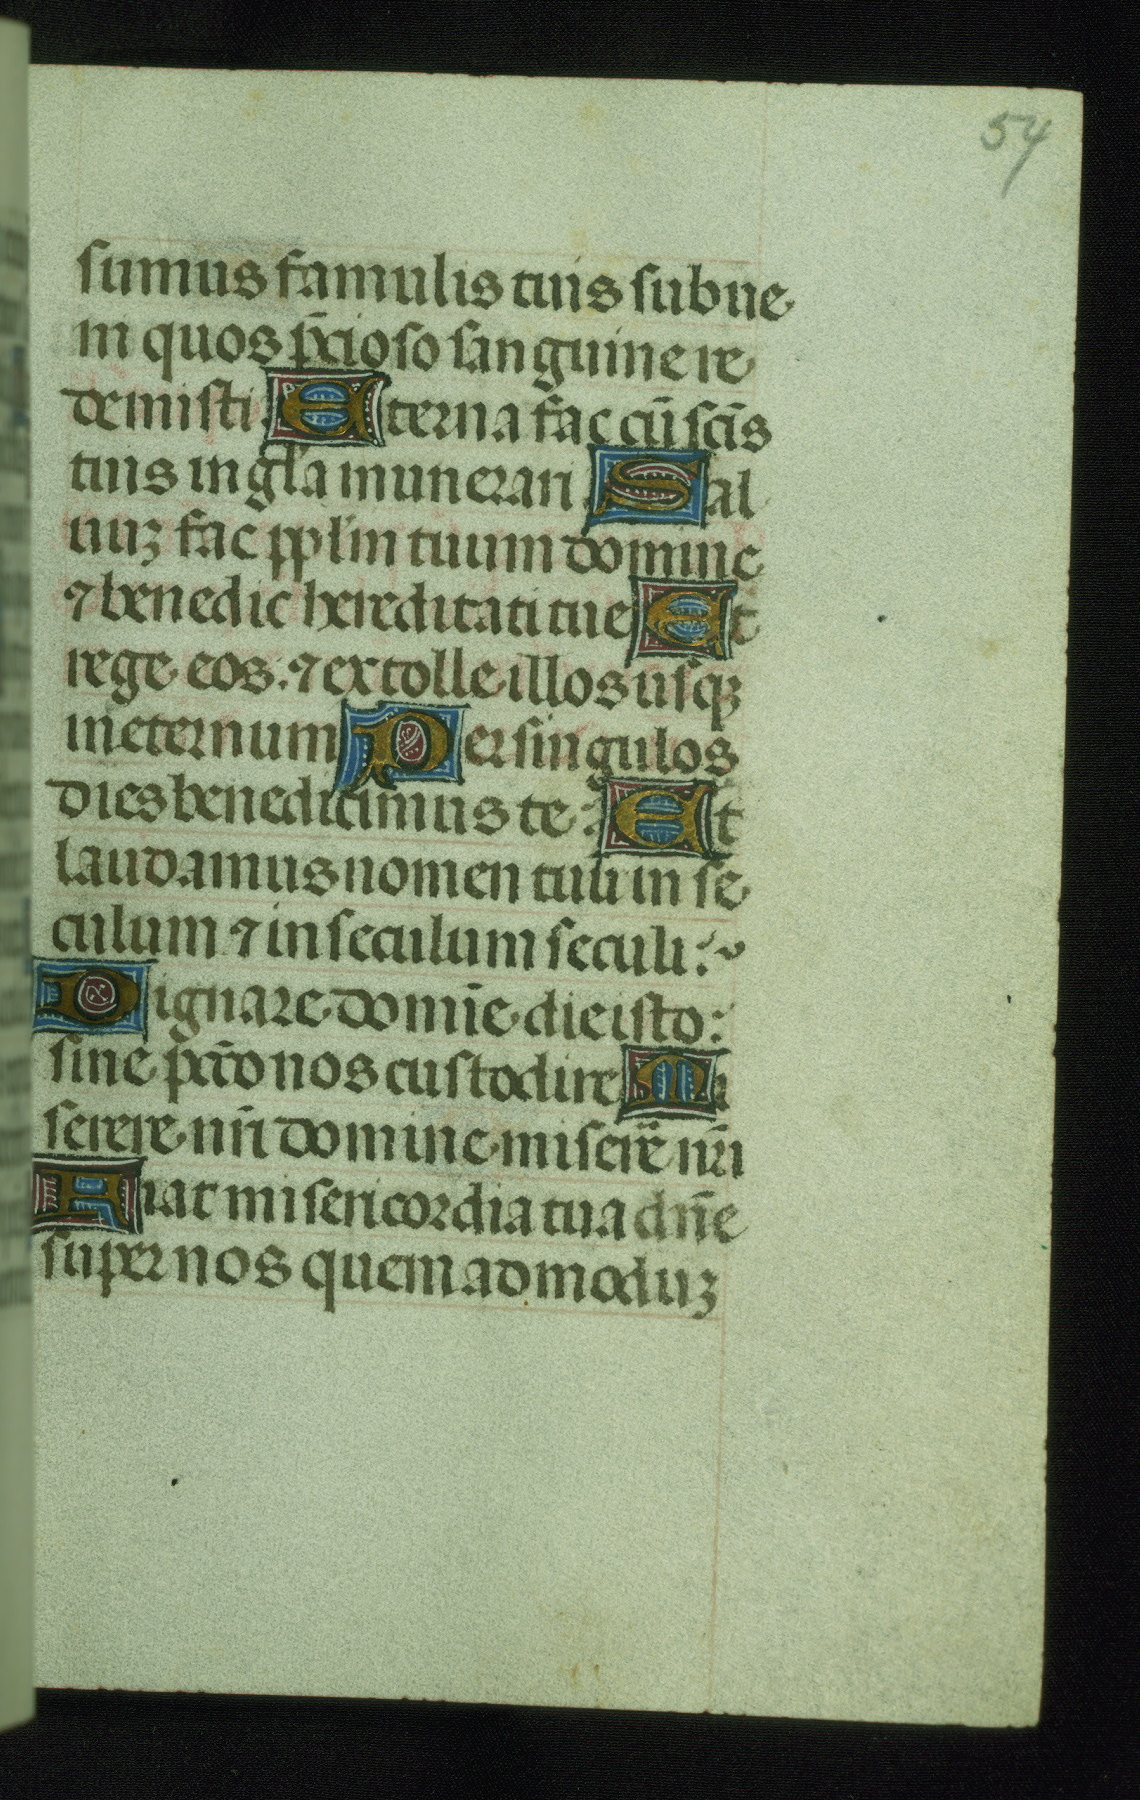 54
sumus famulis tuis subue
ni quos p̄cioso sanguine re
demisti Eterna fac cū scīs
tuis in gl̄a munerari Sal
uuꝫ fac pplm̄ tuum domine
⁊ benedic hereditati tue Et
rege eos: ⁊ extolle illos usqꝫ
in eternum Per singulos
dies benedicimus te: Et
laudamus nomen tuū in se
culum ⁊ in seculum seculi:
Dignare domīe die isto:
sine pc̄to nos custodire Mi
serere nr̄i domine miserē nr̄i
Fiat misericordia tua dn̄e
super nos quemadmoduꝫ